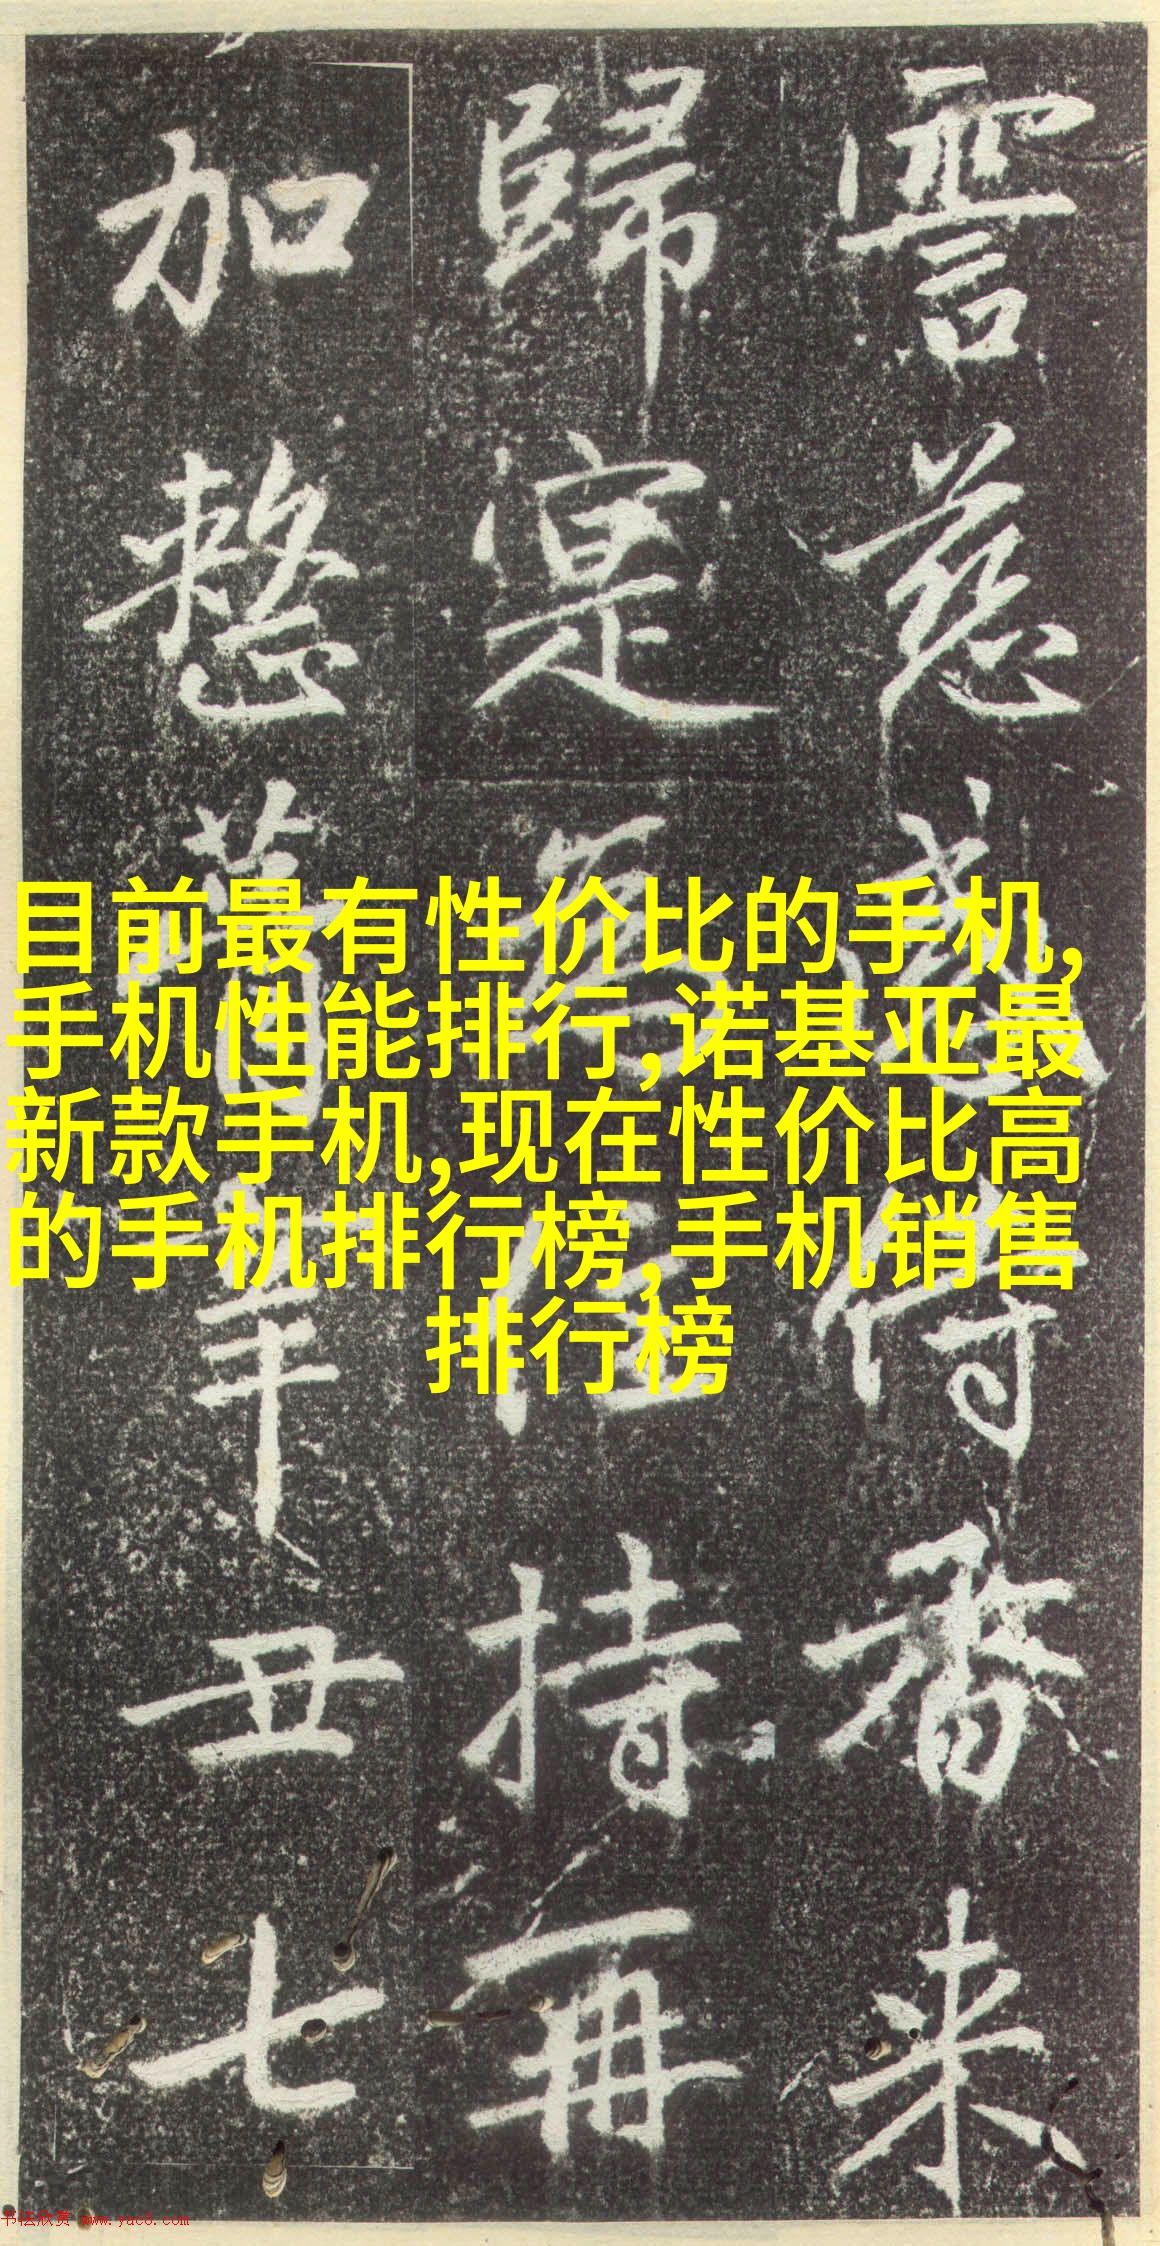 雲慈感傅香来
歸寔為
持再
加整
辛丑七
目前最有性价比的手机,
手机性能排行,诺基亚最
新款手机,现在性价比高
的手机排行榜,手机销售
排行榜
书法欣赏 www.yac8.com